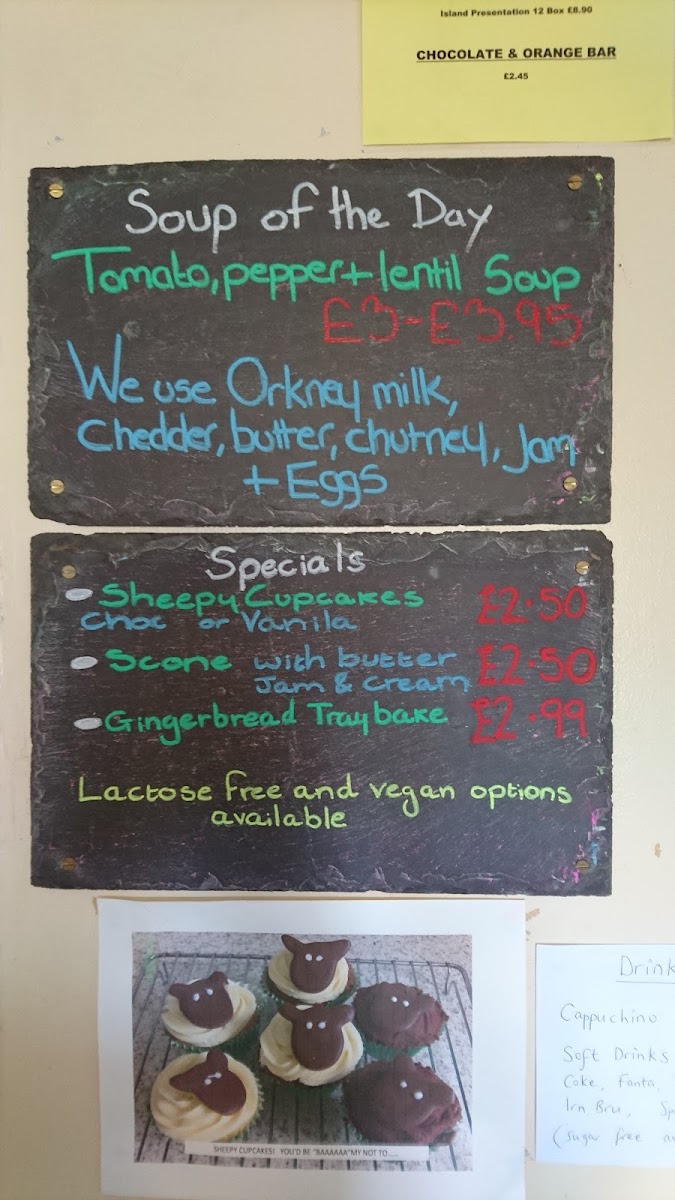 Island Presentation 12 Box £8.90
CHOCOLATE & ORANGE BAR
£2.45
Soup of the Day
Tomato, pepper + lentil Soup
£3-£3.95
We use Orkney milk,
Chedder, butter, chutney, Jam
+ Eggs
Specials
Sheepy Cupcakes £2.50
Choc or Vanila
Scone with butter £2.50
Jam & Cream
Gingerbread Traybake £2.99
Lactose free and vegan options
available
SHEEPY CUPCAKES! YOU'D BE "BAAAAAA"MY NOT TO.....
Drink
Cappuchino
Soft Drinks
Coke, Fanta,
Irn Bru, Sp
(sugar free av